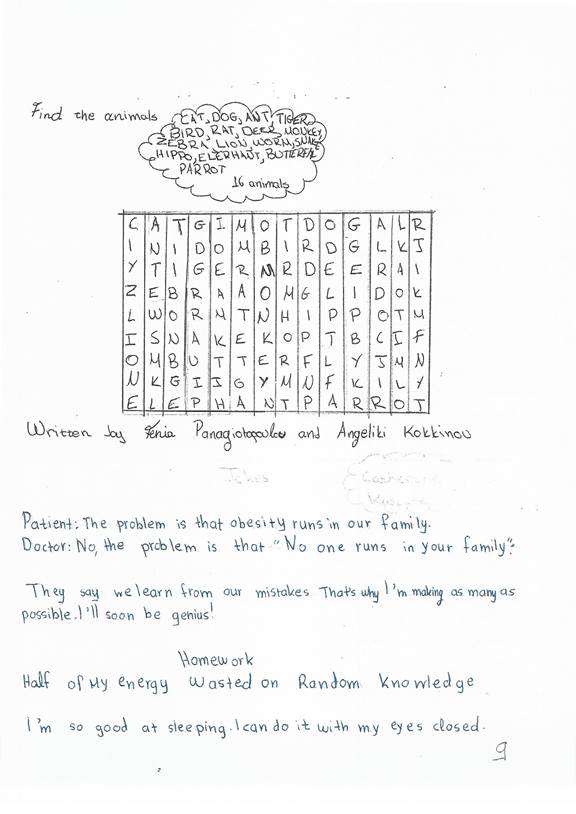 Find the animals
CAT, DOG, ANT, TIGER,
BIRD, RAT, DEER, MONKEY,
ZEBRA, LION, WORM, SNAKE
HIPPO, ELEPHANT, BUTTERFLY
PARROT
16 animals
C A T G I M O T D O G A L R
I N I D O M B I R D G L K J
Y T I G E R M R D E E R A I
Z E B R A A O M G L I D O K
L W O R M T N H I P P O T M
I S N A K E K O P T B C I F
O M B U T T E R F L Y J M N
N K G I I G Y M N F K I L Y
E L E P H A N T P A R R O T
Written by Xenia Panagiotopoulou and Angeliki Kokkinou
Jokes
Patient: The problem is that obesity runs in our family.
Doctor: No, the problem is that "No one runs in your family".
They say we learn from our mistakes That's why I'm making as many as
possible. I'll soon be genius!
Homework
Half of My energy Wasted on Random Knowledge
I'm so good at sleeping. I can do it with my eyes closed.
9